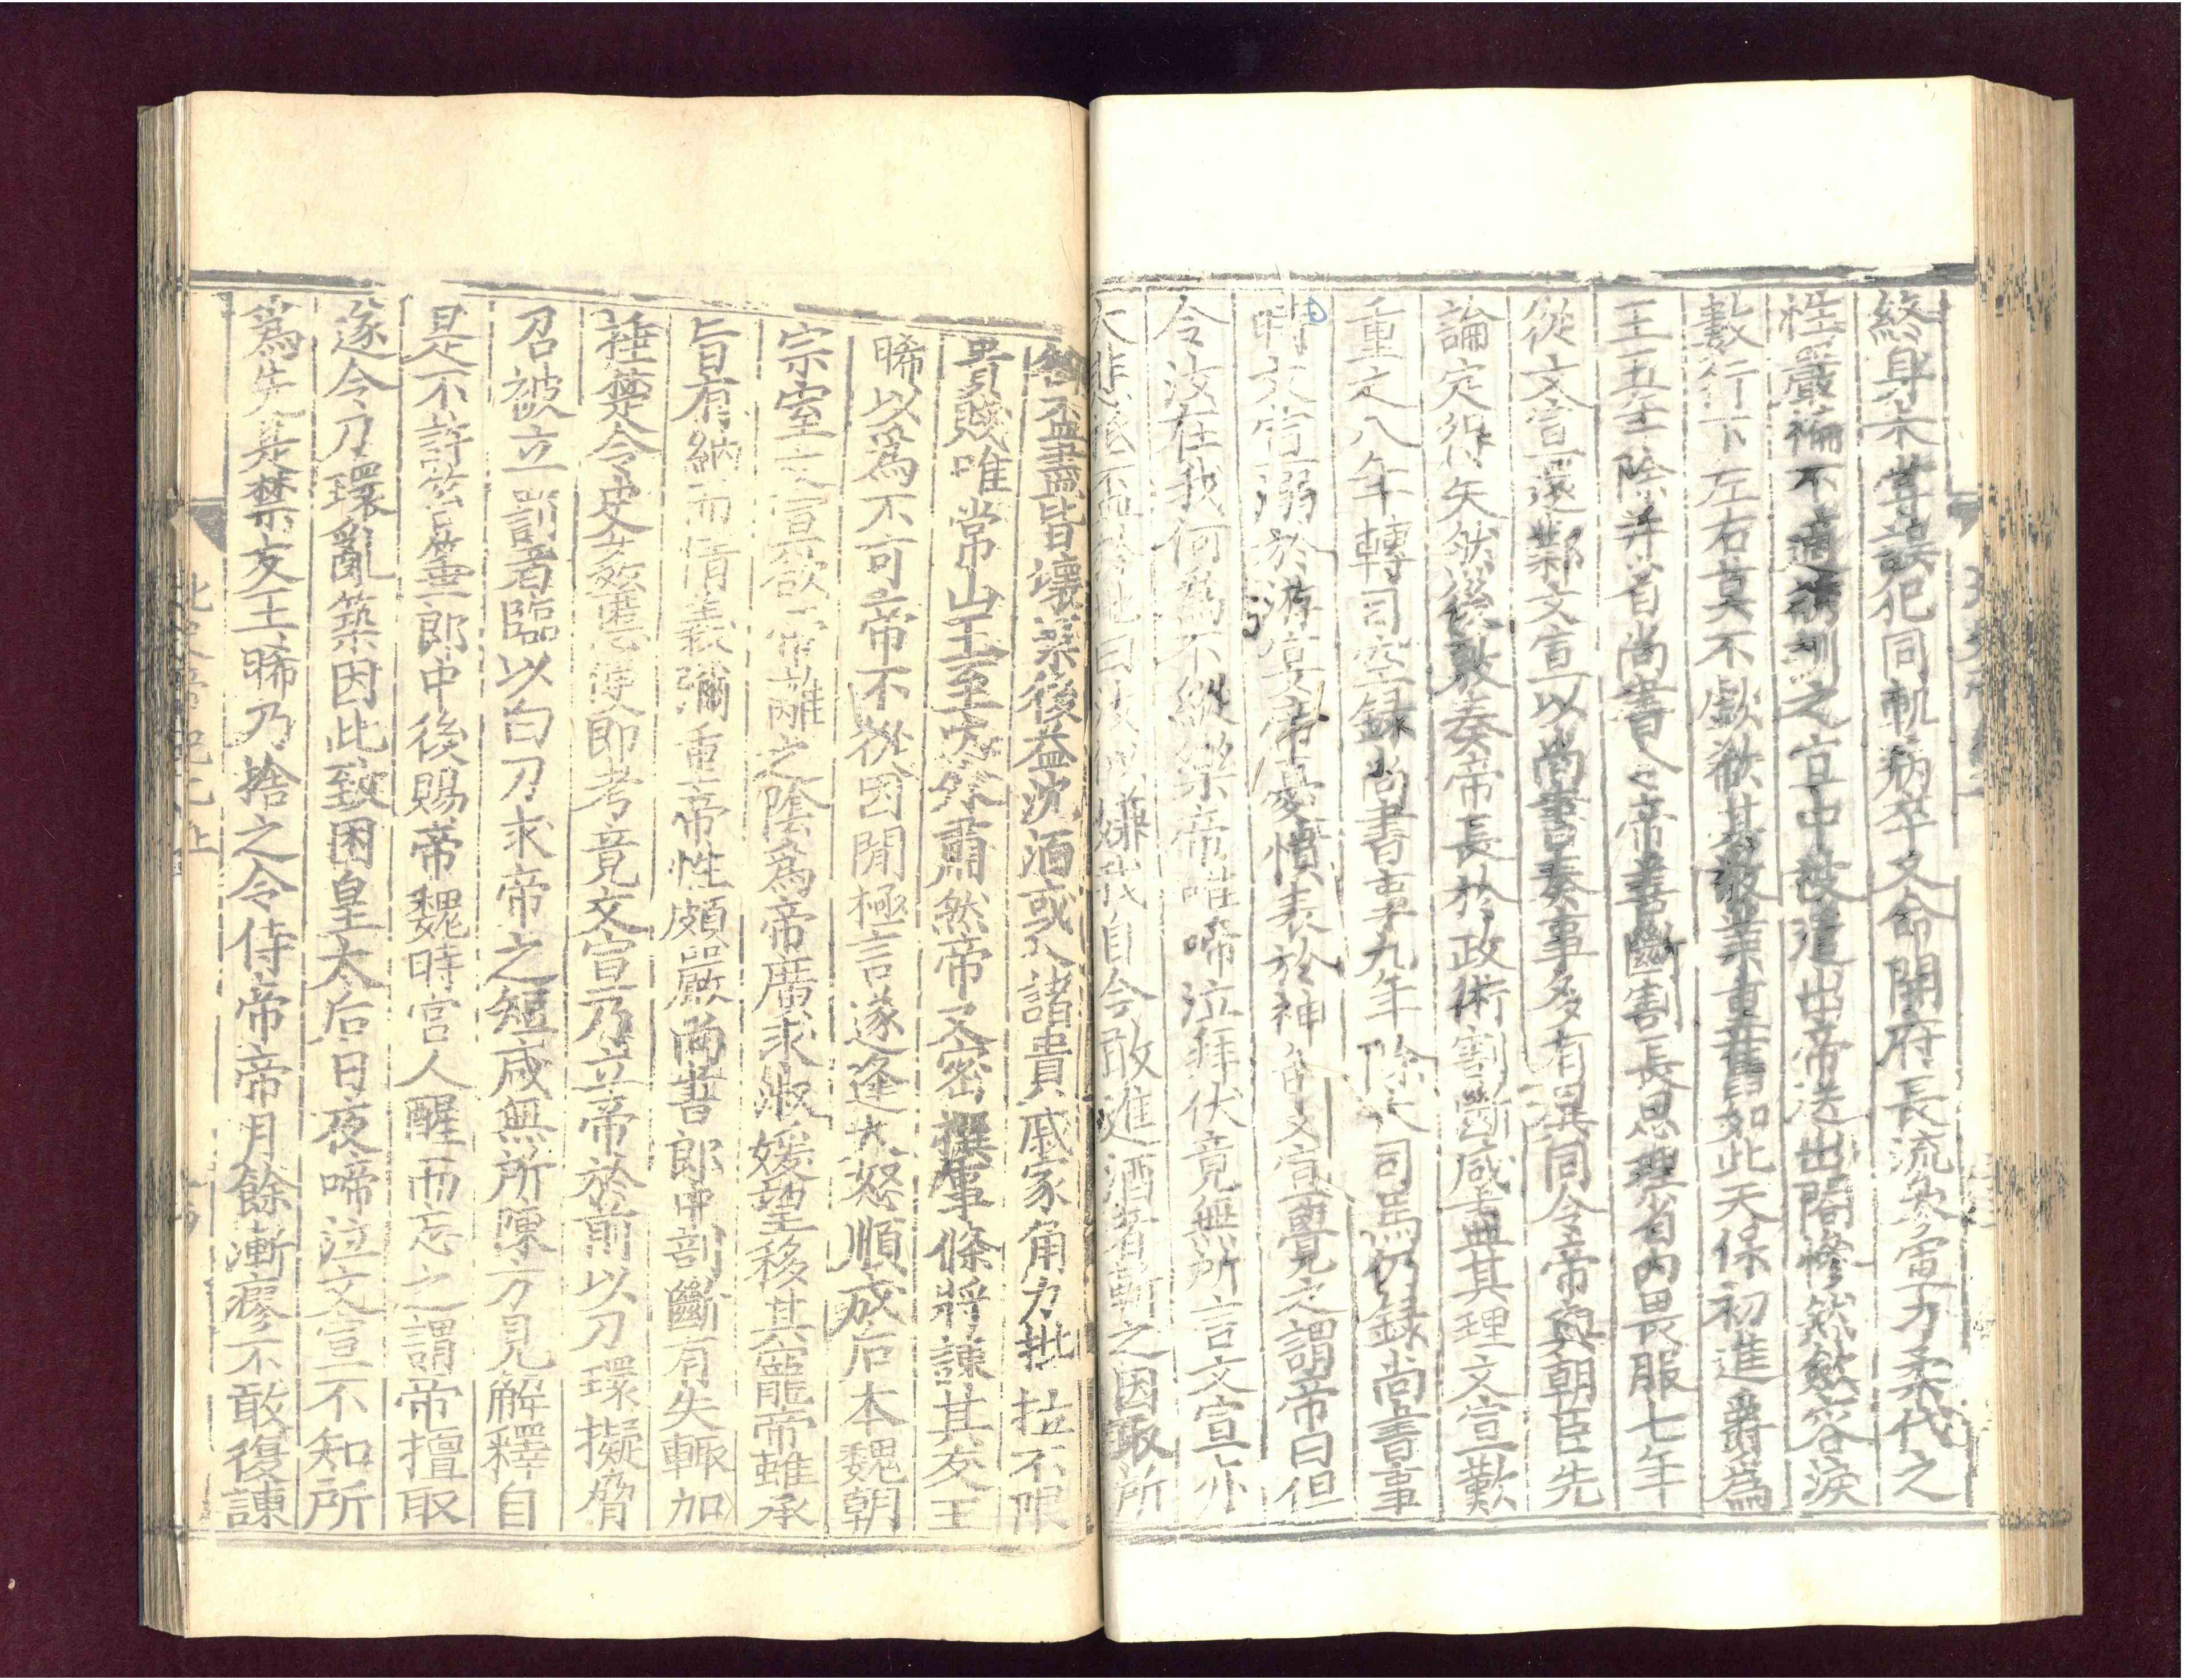 終身未嘗誤犯同軌病卒又命開府長流參軍刁柔代之
性嚴褊不適訓之宜中被遣出帝送出閤慘然歛容淚
數行下左右莫不歔欷其敬業重舊如此天保初進爵爲
王五年除并省尚書令帝善斷割長思理省內畏服七年
從文宣還鄴文宣以尚書奏事多有異同令帝與朝臣先
論定得失然後敦奏帝長於政術割斷咸盡其理文宣歎
重之八年轉司空錄尚書事九年除大司馬仍錄尚書事
時文宣溺於游宴帝憂憤表於神色文宣覺之謂帝曰但
令汝在我何爲不縱樂帝唯啼泣拜伏竟無所言文宣亦
大悲抵盃於地曰汝似嫌我自今敢進酒者斬之因取所
御盃盡皆壞棄後益沈湎或入諸貴戚家角力批拉不限
貴賤唯常山王至內外肅然帝又密撰事條將諫其友王
晞以爲不可帝不從因閒極言遂逢大怒順成后本魏朝
宗室文宣欲帝離之陰爲帝廣求淑媛望移其寵帝雖承
旨有納而情義彌重帝性頗嚴尚書郎中剖斷有失輒加
捶楚令史姦慝便即考竟文宣乃立帝於前以刀環擬脅
召被立罰者臨以白刃求帝之短咸無所陳方見解釋自
是不許笞箠郎中後賜帝魏時宮人醒而忘之謂帝擅取
遂令刀環亂築因此致困皇太后日夜啼泣文宣不知所
爲先是禁友王晞乃捨之令侍帝帝月餘漸瘳不敢復諫